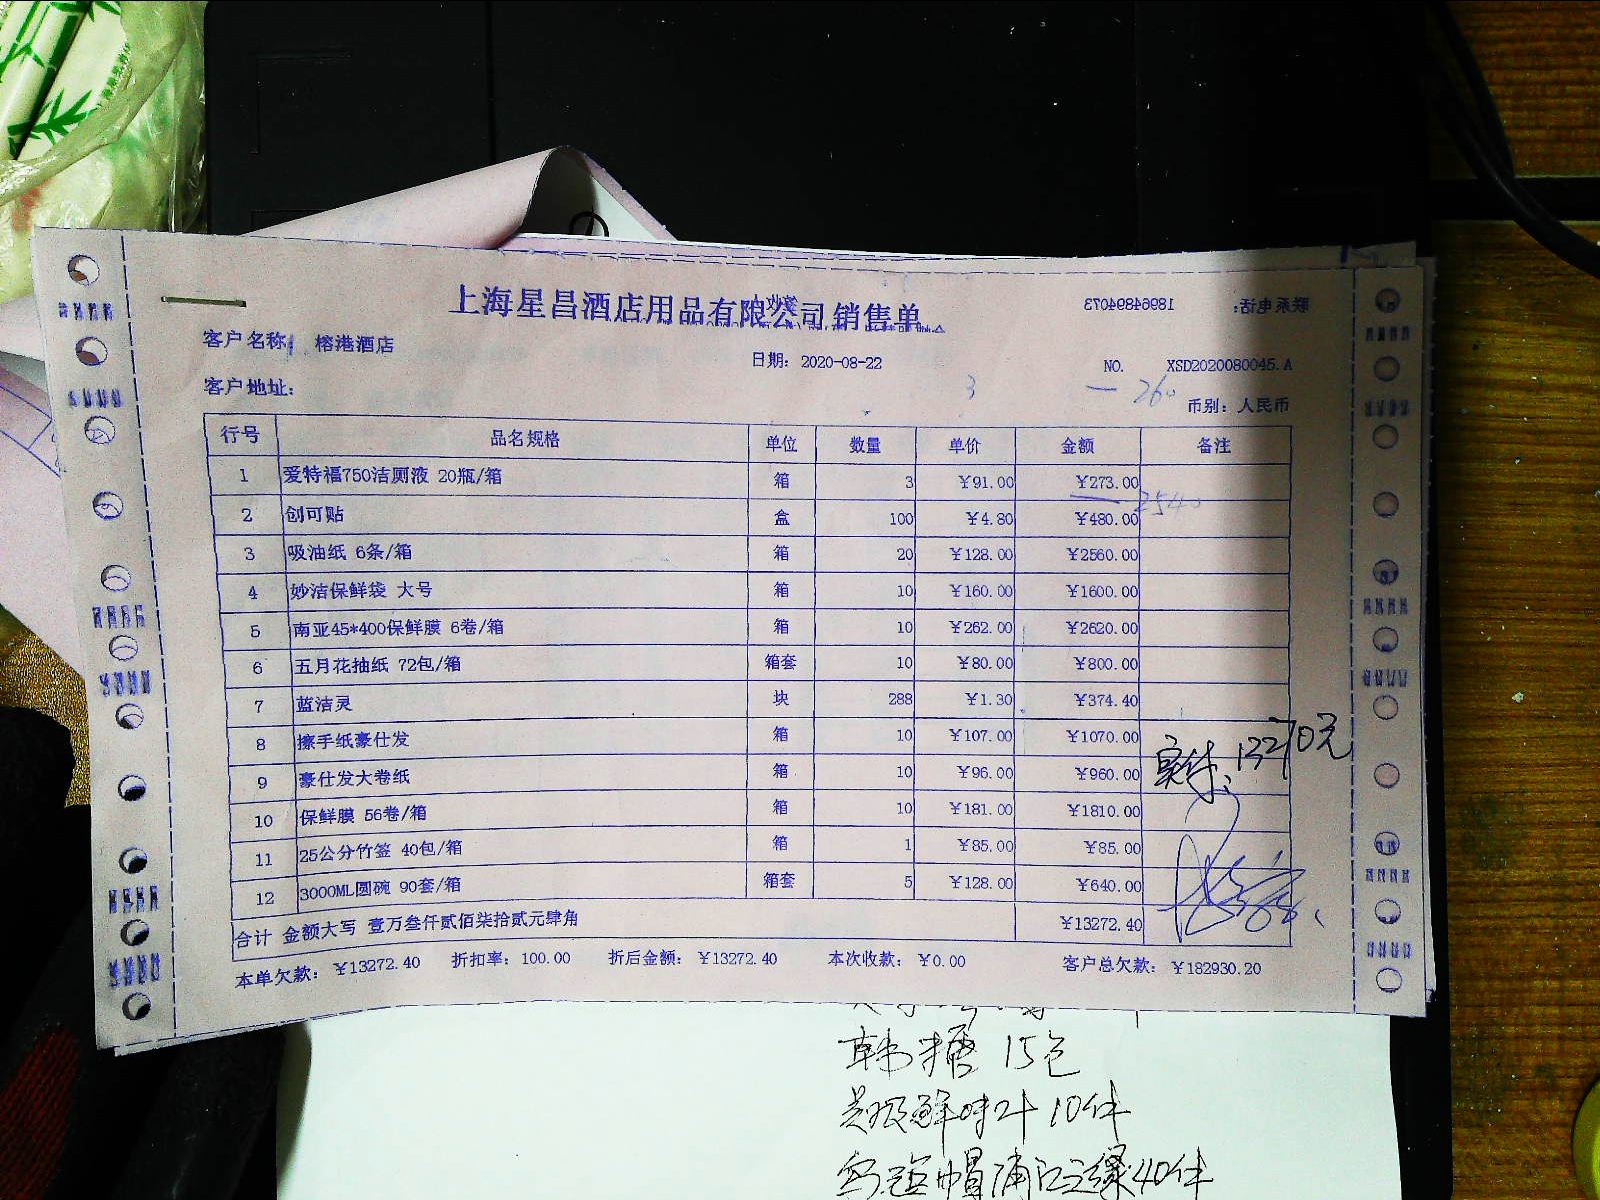 上海星昌酒店用品有限公司销售单
联系电话: 18964894073
客户名称: 榕港酒店
日期: 2020-08-22
NO. XSD2020080045.A
客户地址:
3 — 260
币别: 人民币
行号 品名规格 单位 数量 单价 金额 备注
1 爱特福750洁厕液 20瓶/箱 箱 3 ¥91.00 ¥273.00
2540
2 创可贴 盒 100 ¥4.80 ¥480.00
3 吸油纸 6条/箱 箱 20 ¥128.00 ¥2560.00
4 妙洁保鲜袋 大号 箱 10 ¥160.00 ¥1600.00
5 南亚45*400保鲜膜 6卷/箱 箱 10 ¥262.00 ¥2620.00
6 五月花抽纸 72包/箱 箱套 10 ¥80.00 ¥800.00
7 蓝洁灵 块 288 ¥1.30 ¥374.40
8 擦手纸豪仕发 箱 10 ¥107.00 ¥1070.00
实结: 13270元
9 豪仕发大卷纸 箱 10 ¥96.00 ¥960.00
10 保鲜膜 56卷/箱 箱 10 ¥181.00 ¥1810.00
11 25公分竹签 40包/箱 箱 1 ¥85.00 ¥85.00
12 3000ML圆碗 90套/箱 箱套 5 ¥128.00 ¥640.00
合计 金额大写 壹万叁仟贰佰柒拾贰元肆角 ¥13272.40
本单欠款: ¥13272.40 折扣率: 100.00 折后金额: ¥13272.40 本次收款: ¥0.00 客户总欠款: ¥182930.20
韩糖 15包
10件
40件